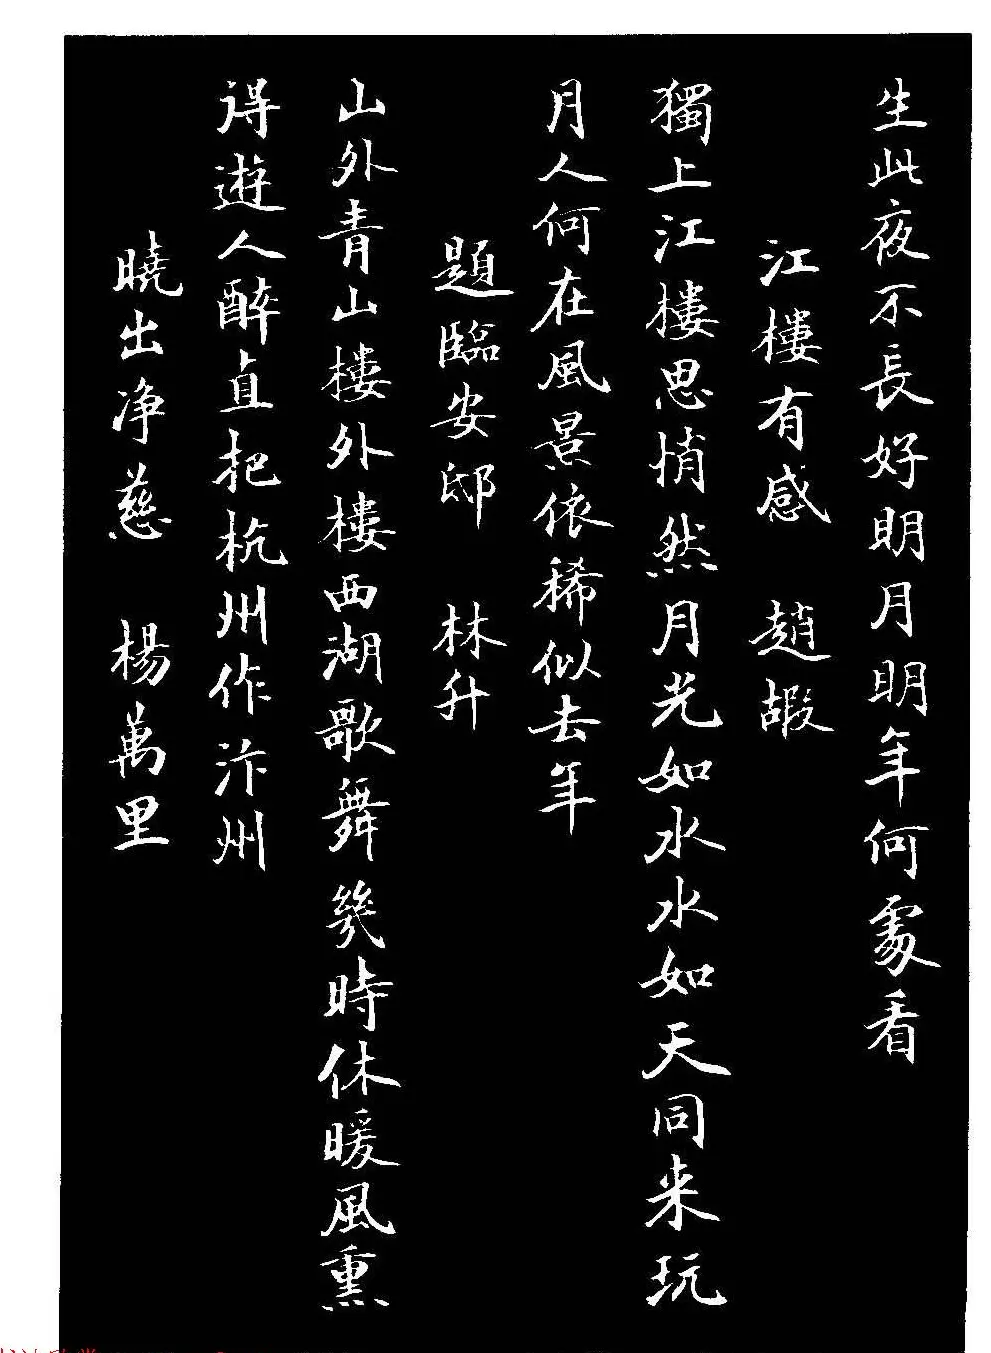 生此夜不長好明月明年何處看
江樓有感 趙嘏
獨上江樓思悄然月光如水水如天同来玩
月人何在風景依稀似去年
題臨安邸 林升
山外青山樓外樓西湖歌舞幾時休暖風熏
得遊人醉直把杭州作汴州
曉出净慈 楊萬里